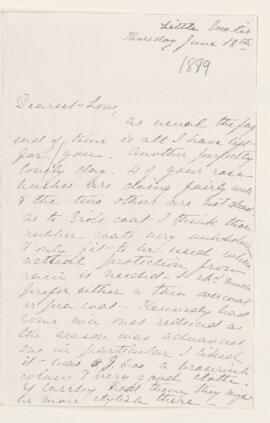 Little Metis
Thursday June 18th
1889
Dearest Love,
as usual the fag
end of time is all I have left
for you. Another perfectly
lovely day. 4 of your rose
bushes are doing fairly well
& the two others are not dead
as to Eric's coat I think those
rubber coats very unwholesome
& only fit to be used when
actual protection from
rain is needed. I shd much
prefer either a thin overcoat
or pea coat. Kennedy had
some nice ones reduced as
the season was advanced
one in particular I liked
it was a brownish
colour & very good cloth.
Gt Carsley had them they might
be more stylish there